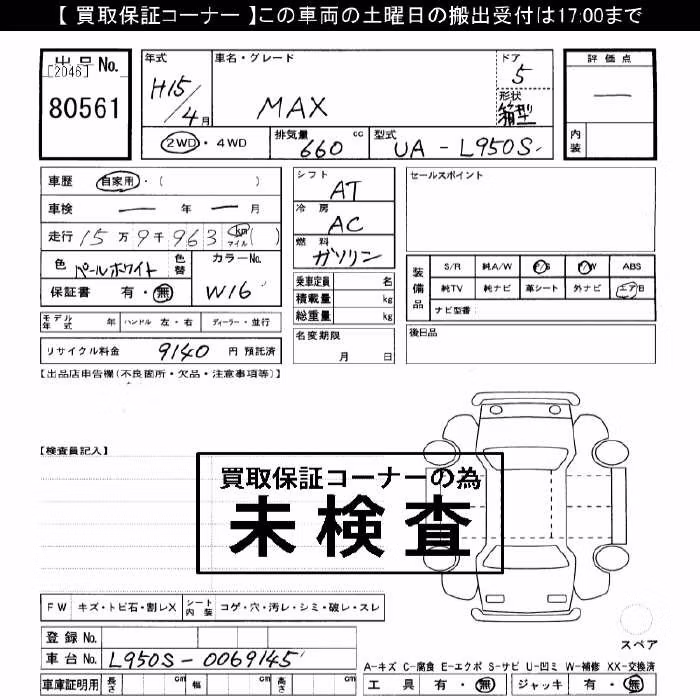 【 買取保証コーナー 】この車両の土曜日の搬出受付は17:00まで
出品 No.
[2046]
80561
年式
H15/4月
車名・グレード
MAX
ドア
5
形状
箱型
評価点
―
内装
2WD・4WD
排気量
660 cc
型式
UA - L950S
車歴 自家用・( )
車検 ― 年 ― 月
走行 15万9千963 km マイル ( )
色 パールホワイト 色替
カラーNo.
W16
保証書 有・無
シフト
AT
冷房
AC
燃料
ガソリン
乗車定員 名
積載量 kg
総重量 kg
セールスポイント
装備品
S/R 純A/W P/S P/W ABS
純TV 純ナビ 革シート 外ナビ エアB
ナビ型番
モデル年式 年 ハンドル 左・右 ディーラー・並行
リサイクル料金 9140 円 預託済
名変期限
月 日
後日品
【出品店申告欄(不良箇所・欠品・注意事項等)】
【検査員記入】
買取保証コーナーの為
未検査
FW キズ・トビ石・割レX シート内装 コゲ・穴・汚レ・シミ・破レ・スレ
スペア
登録 No.
車台 No. L950S-0069145
A-キズ C-腐食 E-エクボ S-サビ U-凹ミ W-補修 XX-交換済
車庫証明用 長さ cm 幅 cm 高さ cm
工具 有・無 ジャッキ 有・無